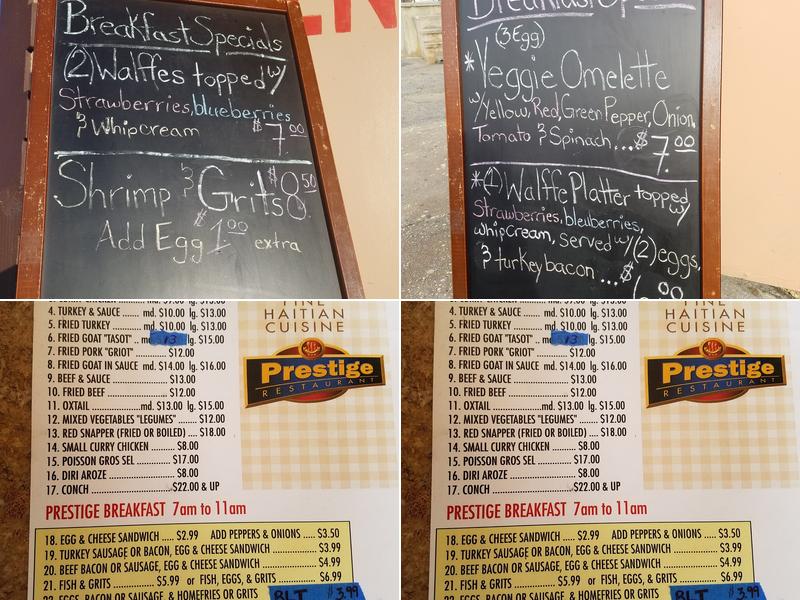 EN
Breakfast Specials
(2) Walffes topped w/
Strawberries, blueberries
& Whipcream $7.00
Shrimp & Grits $8.50
Add Egg $1.00 extra
(3 Egg)
*Veggie Omelette
w/Yellow, Red, Green Pepper, Onion,
Tomato & Spinach...$7.00
*(1) Walffe Platter topped w/
Strawberries, bleuberries,
whipcream, served w/(2)eggs,
& turkey bacon...$
4. TURKEY & SAUCE ....... md. $10.00 lg. $13.00
5. FRIED TURKEY ... md. $10.00 lg. $13.00
6. FRIED GOAT "TASOT" .. md. $13 lg. $15.00
7. FRIED PORK "GRIOT" ........ $12.00
8. FRIED GOAT IN SAUCE md. $14.00 lg. $16.00
9. BEEF & SAUCE ............... $13.00
10. FRIED BEEF ................. $12.00
11. OXTAIL ............md. $13.00 lg. $15.00
12. MIXED VEGETABLES "LEGUMES" ....... $12.00
13. RED SNAPPER (FRIED OR BOILED) .... $18.00
14. SMALL CURRY CHICKEN ....... $8.00
15. POISSON GROS SEL ....... $17.00
16. DIRI AROZE ................. $8.00
17. CONCH .......................$22.00 & UP
FINE
HAITIAN
CUISINE
Prestige
RESTAURANT
PRESTIGE BREAKFAST 7am to 11am
18. EGG & CHEESE SANDWICH ..... $2.99 ADD PEPPERS & ONIONS ..... $3.50
19. TURKEY SAUSAGE OR BACON, EGG & CHEESE SANDWICH ........... $3.99
20. BEEF BACON OR SAUSAGE, EGG & CHEESE SANDWICH ............. $4.99
21. FISH & GRITS ............... $5.99 or FISH, EGGS, & GRITS ........... $6.99
22. EGGS, BACON OR SAUSAGE, & HOMEFRIES OR GRITS
BLT $3.99
4. TURKEY & SAUCE ....... md. $10.00 lg. $13.00
5. FRIED TURKEY ... md. $10.00 lg. $13.00
6. FRIED GOAT "TASOT" .. md. $13 lg. $15.00
7. FRIED PORK "GRIOT" ........ $12.00
8. FRIED GOAT IN SAUCE md. $14.00 lg. $16.00
9. BEEF & SAUCE ............... $13.00
10. FRIED BEEF ................. $12.00
11. OXTAIL ............md. $13.00 lg. $15.00
12. MIXED VEGETABLES "LEGUMES" ....... $12.00
13. RED SNAPPER (FRIED OR BOILED) .... $18.00
14. SMALL CURRY CHICKEN ....... $8.00
15. POISSON GROS SEL ....... $17.00
16. DIRI AROZE ................. $8.00
17. CONCH .......................$22.00 & UP
FINE
HAITIAN
CUISINE
Prestige
RESTAURANT
PRESTIGE BREAKFAST 7am to 11am
18. EGG & CHEESE SANDWICH ..... $2.99 ADD PEPPERS & ONIONS ..... $3.50
19. TURKEY SAUSAGE OR BACON, EGG & CHEESE SANDWICH ........... $3.99
20. BEEF BACON OR SAUSAGE, EGG & CHEESE SANDWICH ............. $4.99
21. FISH & GRITS ............... $5.99 or FISH, EGGS, & GRITS ........... $6.99
22. EGGS, BACON OR SAUSAGE, & HOMEFRIES OR GRITS
BLT $3.99